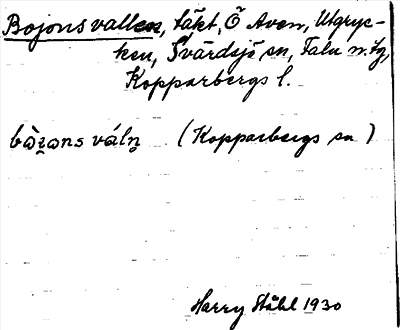 Bojonsvallen, täkt, Ö Aven, Utgryc-
ken, Svärdsjö sn, Falu n. tg,
Kopparbergs l.
bòzons váln̥ (Kopparbergs sn)
Harry Ståhl 1930